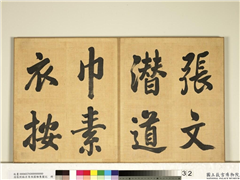 張文
潛道
巾素
衣按
32
國立故宮博物院